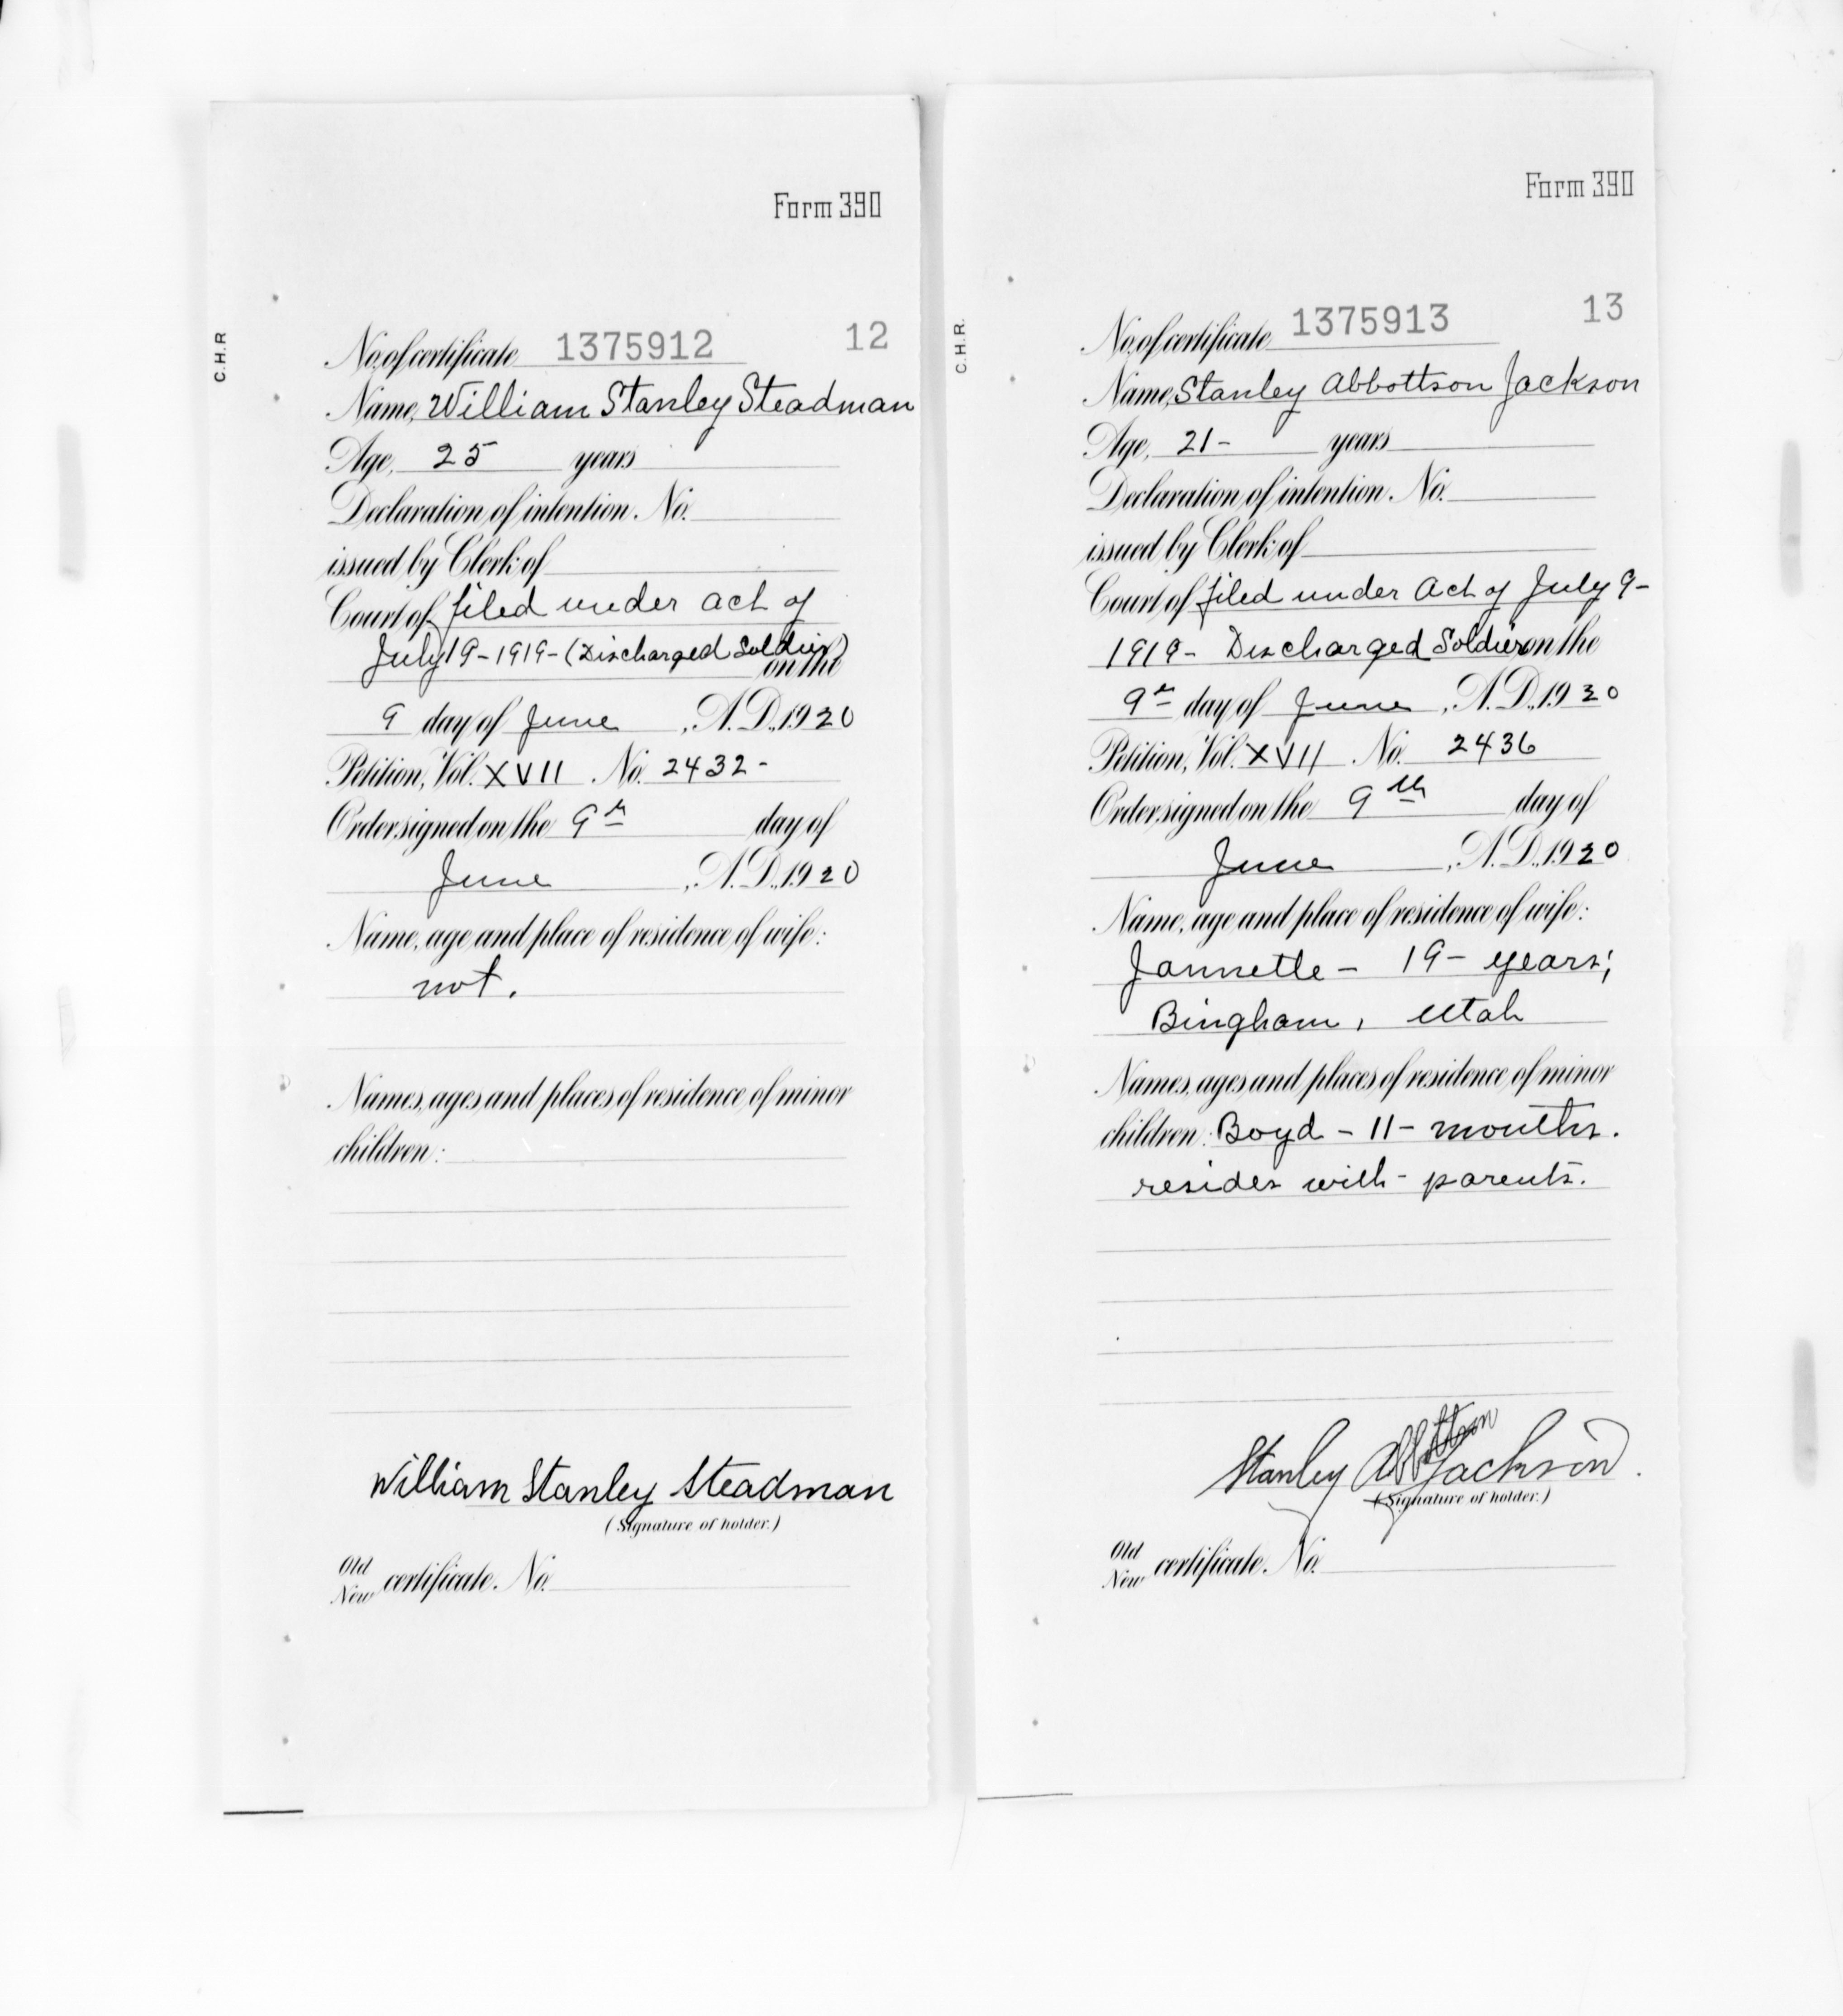 Form 390
C.H.R
No. of certificate 1375912 12
Name, William Stanley Steadman
Age, 25 years
Declaration of intention. No.
issued by Clerk of
Court of filed under act of
July 19-1919-(Discharged Soldier)
on the
9 day of June, A.D., 1920
Petition, Vol. XVII No. 2432-
Order signed on the 9th day of
June, A.D., 1920
Name, age and place of residence of wife:
not.
Names, ages and places of residence of minor
children:
William Stanley Steadman
(Signature of holder.)
Old
New certificate. No.
Form 390
C.H.R.
No. of certificate 1375913 13
Name, Stanley Abbottson Jackson
Age, 21- years
Declaration of intention. No.
issued by Clerk of
Court of filed under Act of July 9-
1919- Discharged Soldier on the
9th day of June, A.D., 1920
Petition, Vol. XVII No. 2436
Order signed on the 9th day of
June, A.D., 1920
Name, age and place of residence of wife:
Jannette - 19- years;
Bingham, Utah
Names, ages and places of residence of minor
children: Boyd - 11- months.
resides with - parents.
Stanley Abbottson Jackson.
(Signature of holder.)
Old
New certificate. No.